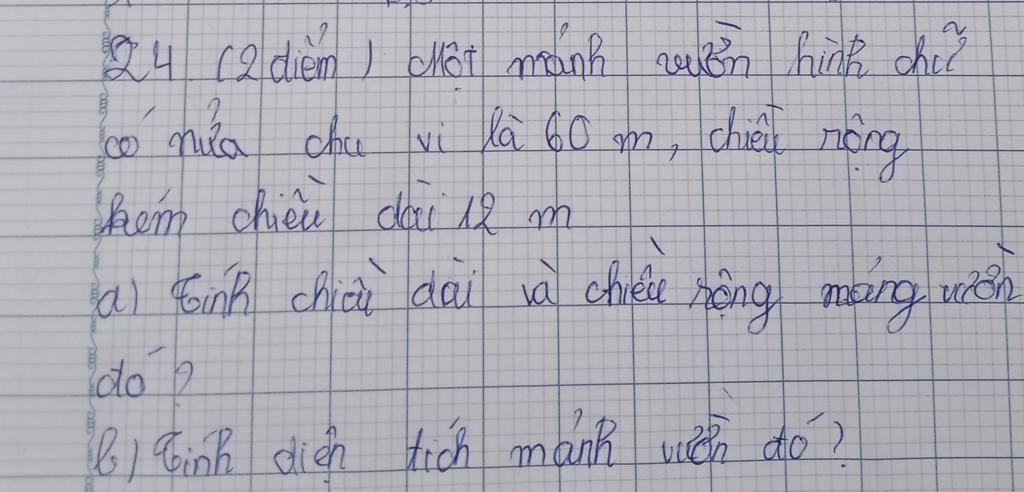 24 (2 điểm) Một mảnh vườn hình chữ
có nửa chu vi là 60 m, chiều rộng
kém chiều dài 12 m
a) Tính chiều dài và chiều rộng máng vườn
đó?
b) Tính diện tích mảnh vườn đó?